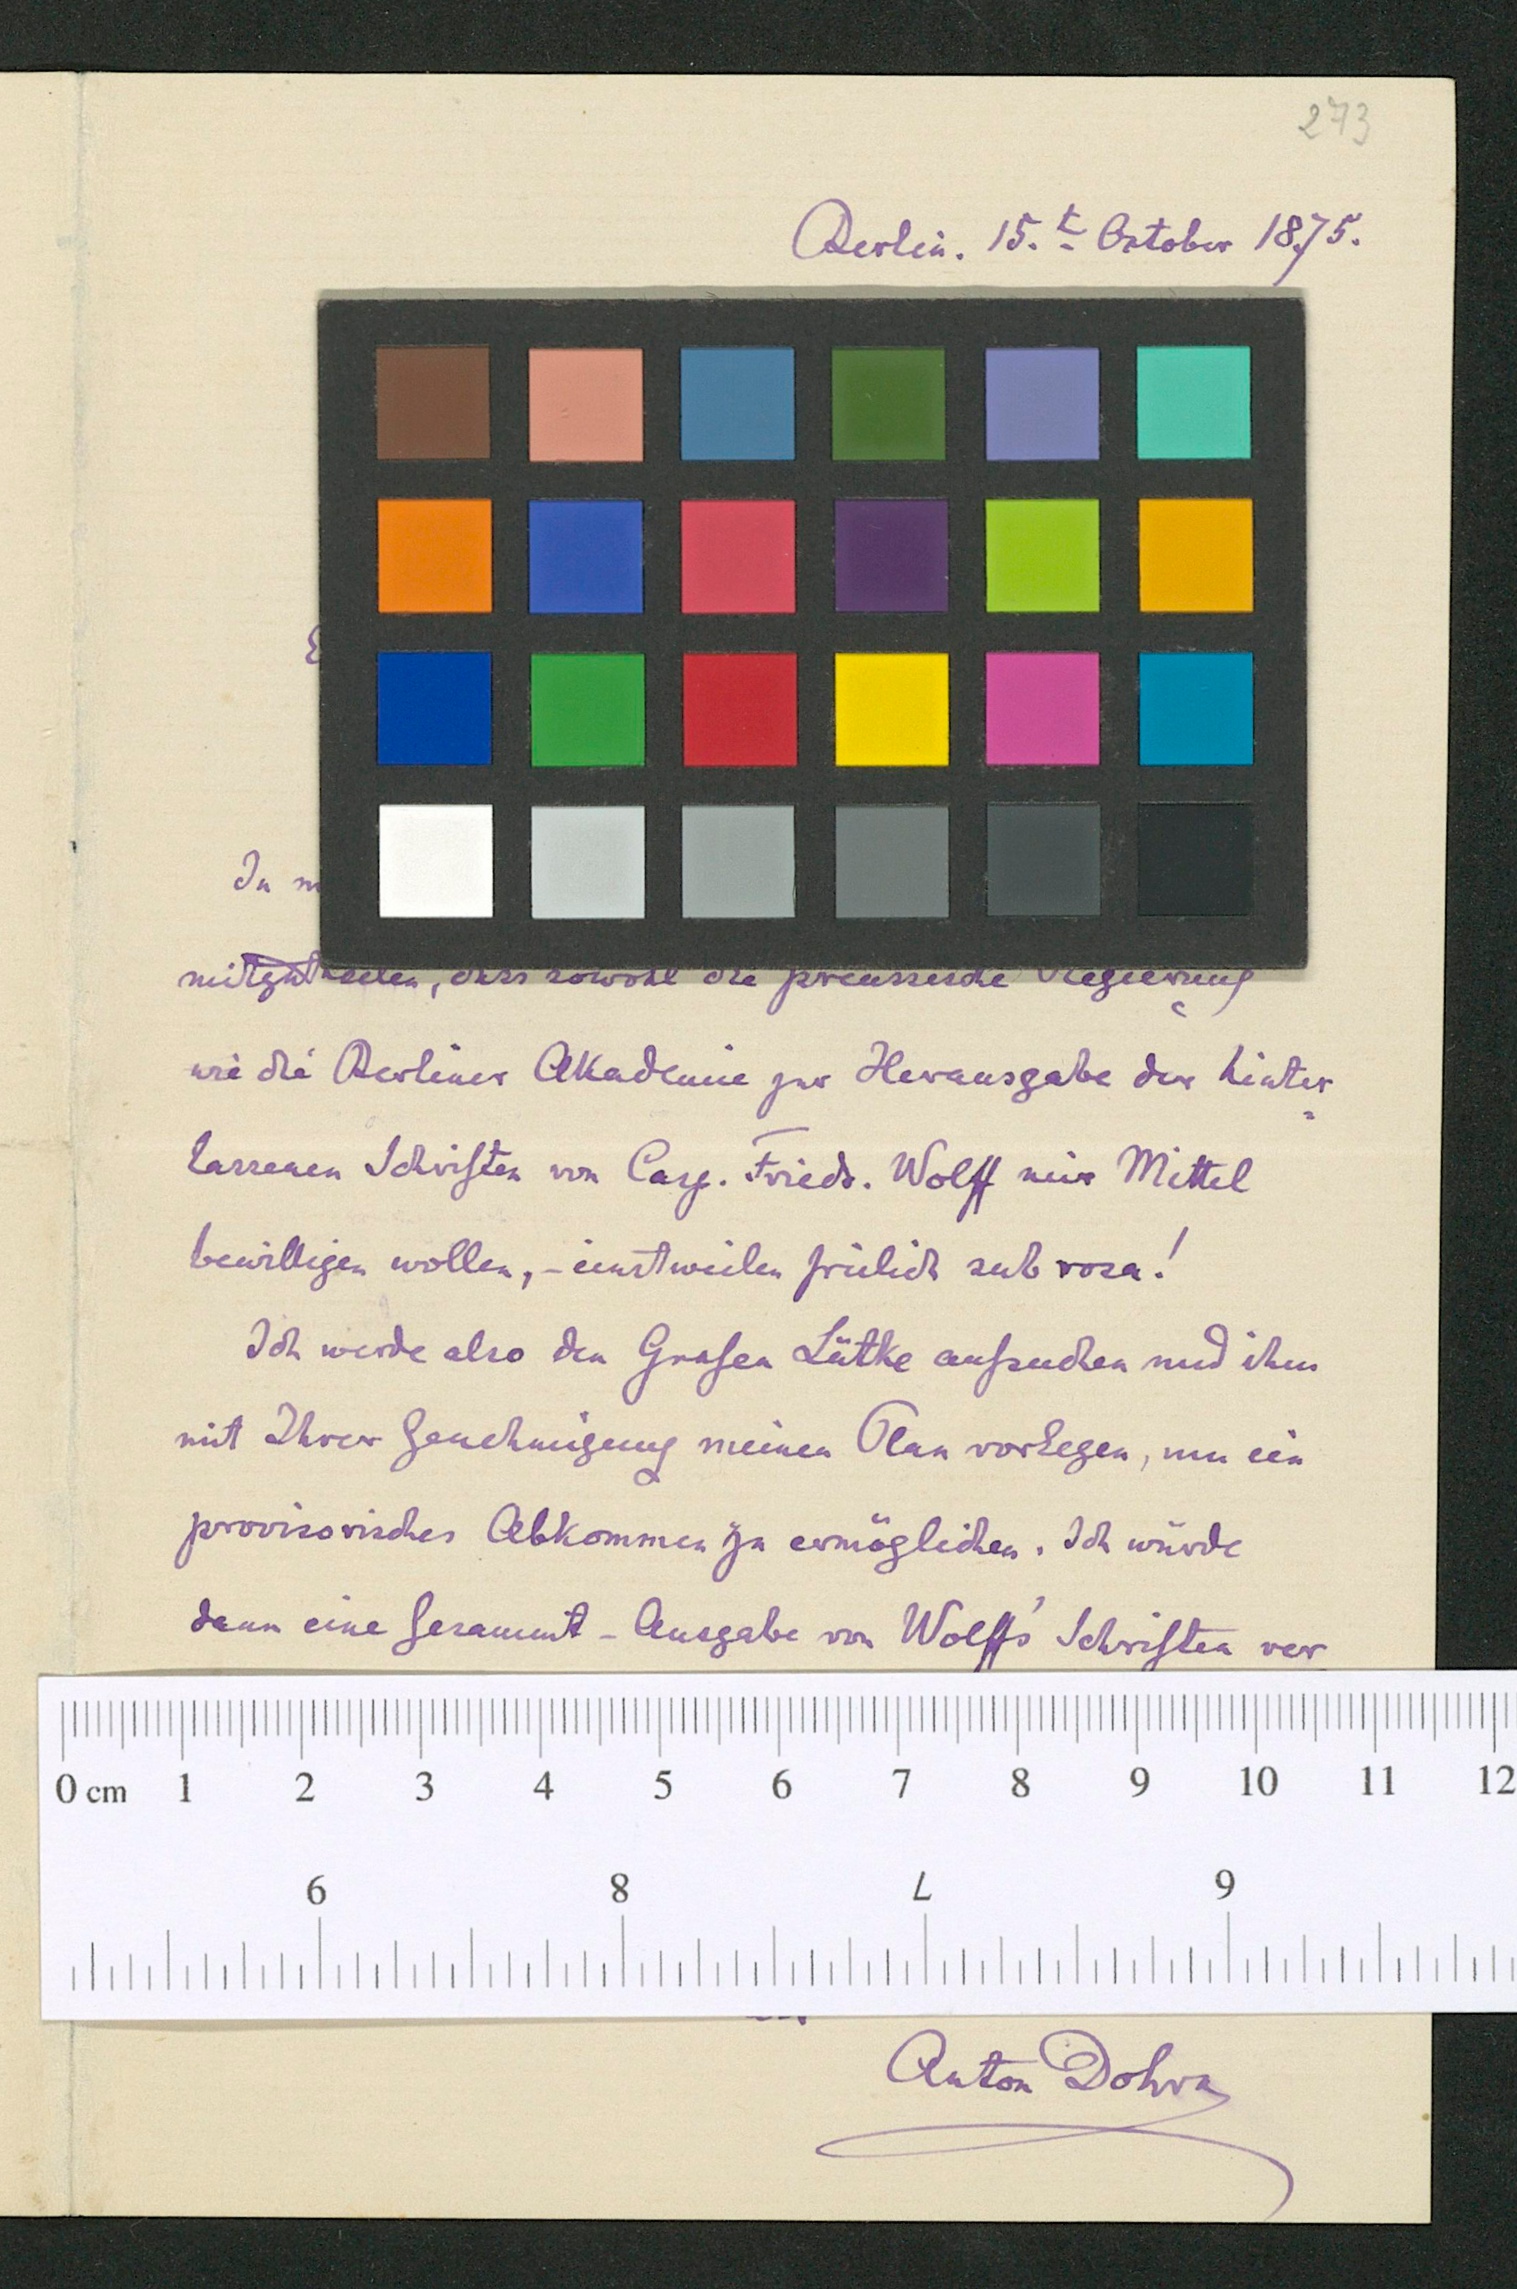 273
Berlin. 15.t October 1875.
E
In m
mitzutheilen, dass sowohl die preussische Regierung
wie die Berliner Akademie zur Herausgabe der hinter
lassenen Schriften von Casp. Friedr. Wolff mir Mittel
bewilligen wollen, - einstweilen freilich sub rosa!
Ich werde also den Grafen Lütke aufsuchen und ihm
mit Ihrer Genehmigung meinen Plan vorlegen, um ein
provisorisches Abkommen zu ermöglichen. Ich würde
dann eine Gesammt-Ausgabe von Wolff's Schriften ver
0 cm 1 2 3 4 5 6 7 8 9 10 11 12
9 8 7 6
Anton Dohrn